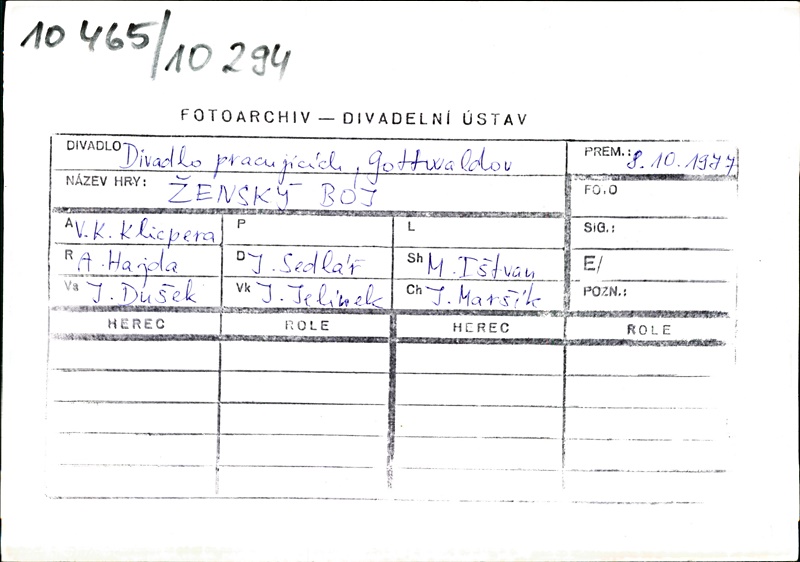 10 465/10 294
FOTOARCHIV — DIVADELNÍ ÚSTAV
DIVADLO Divadlo pracujících, Gottwaldov
PREM.: 8.10.1977
NÁZEV HRY: ŽENSKÝ BOJ
FOTO
A V. K. Klicpera
P
L
SIG.:
R A. Hajda
D J. Sedlář
Sh M. Ištván
E/
Va J. Dušek
Vk J. Jelínek
Ch J. Maršík
POZN.:
HEREC ROLE HEREC ROLE